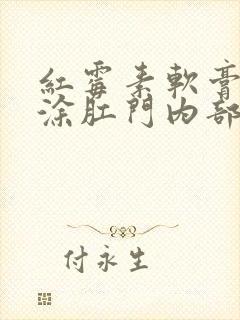 紅霉素軟膏
涂肛門內部
付永生